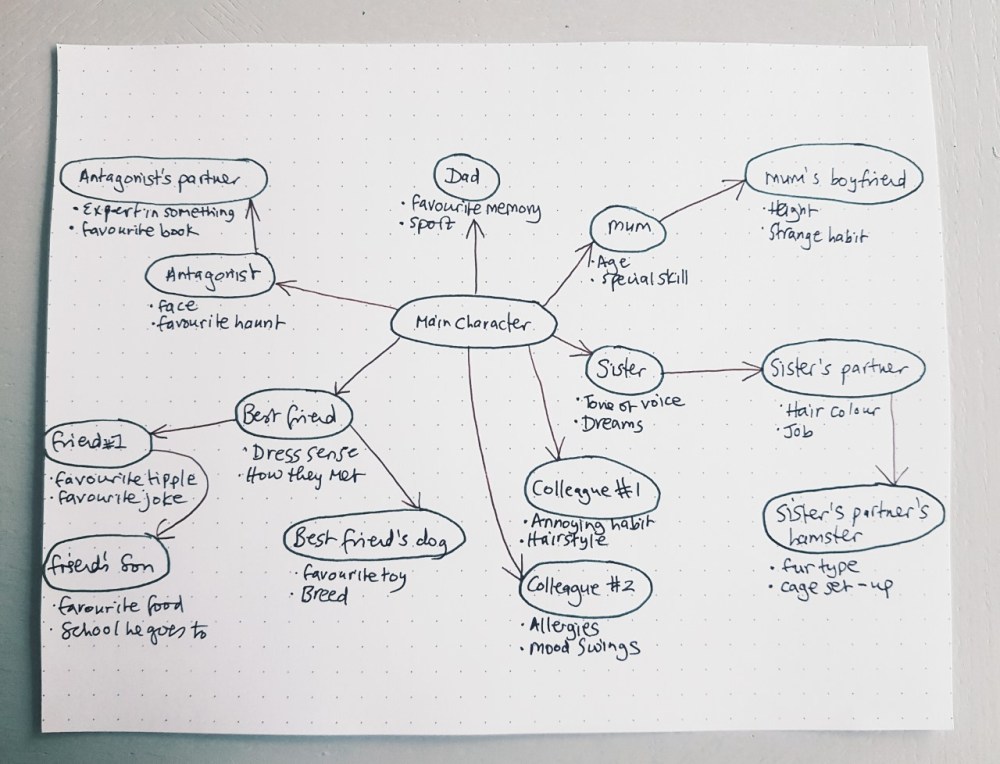 Antagonist's partner
• Expert in something
• favourite book
Antagonist
• face
• favourite haunt
Dad
• favourite memory
• sport
mum
• Age
• special skill
mum's boyfriend
• Height
• Strange habit
Main Character
Sister
• Tone of voice
• Dreams
Sister's partner
• Hair colour
• Job
Sister's partner's
hamster
• fur type
• cage set-up
Best friend
• Dress sense
• How they met
friend #1
• favourite tipple
• favourite joke
friend's son
• favourite food
• School he goes to
Best friend's dog
• favourite toy
• Breed
Colleague #1
• Annoying habit
• Hairstyle
Colleague #2
• Allergies
• Mood Swings